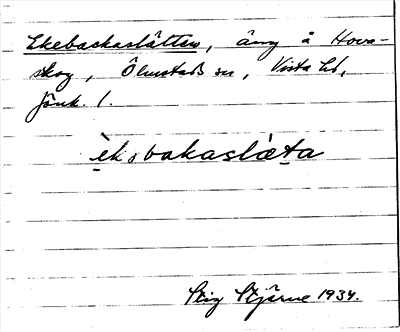 Ekebackaslätten, äng å Hova-
skog, Ölmstads sn, Vista hd,
Jönk. l.
èkₒbakaslǽta
Stig Stjärne 1934.